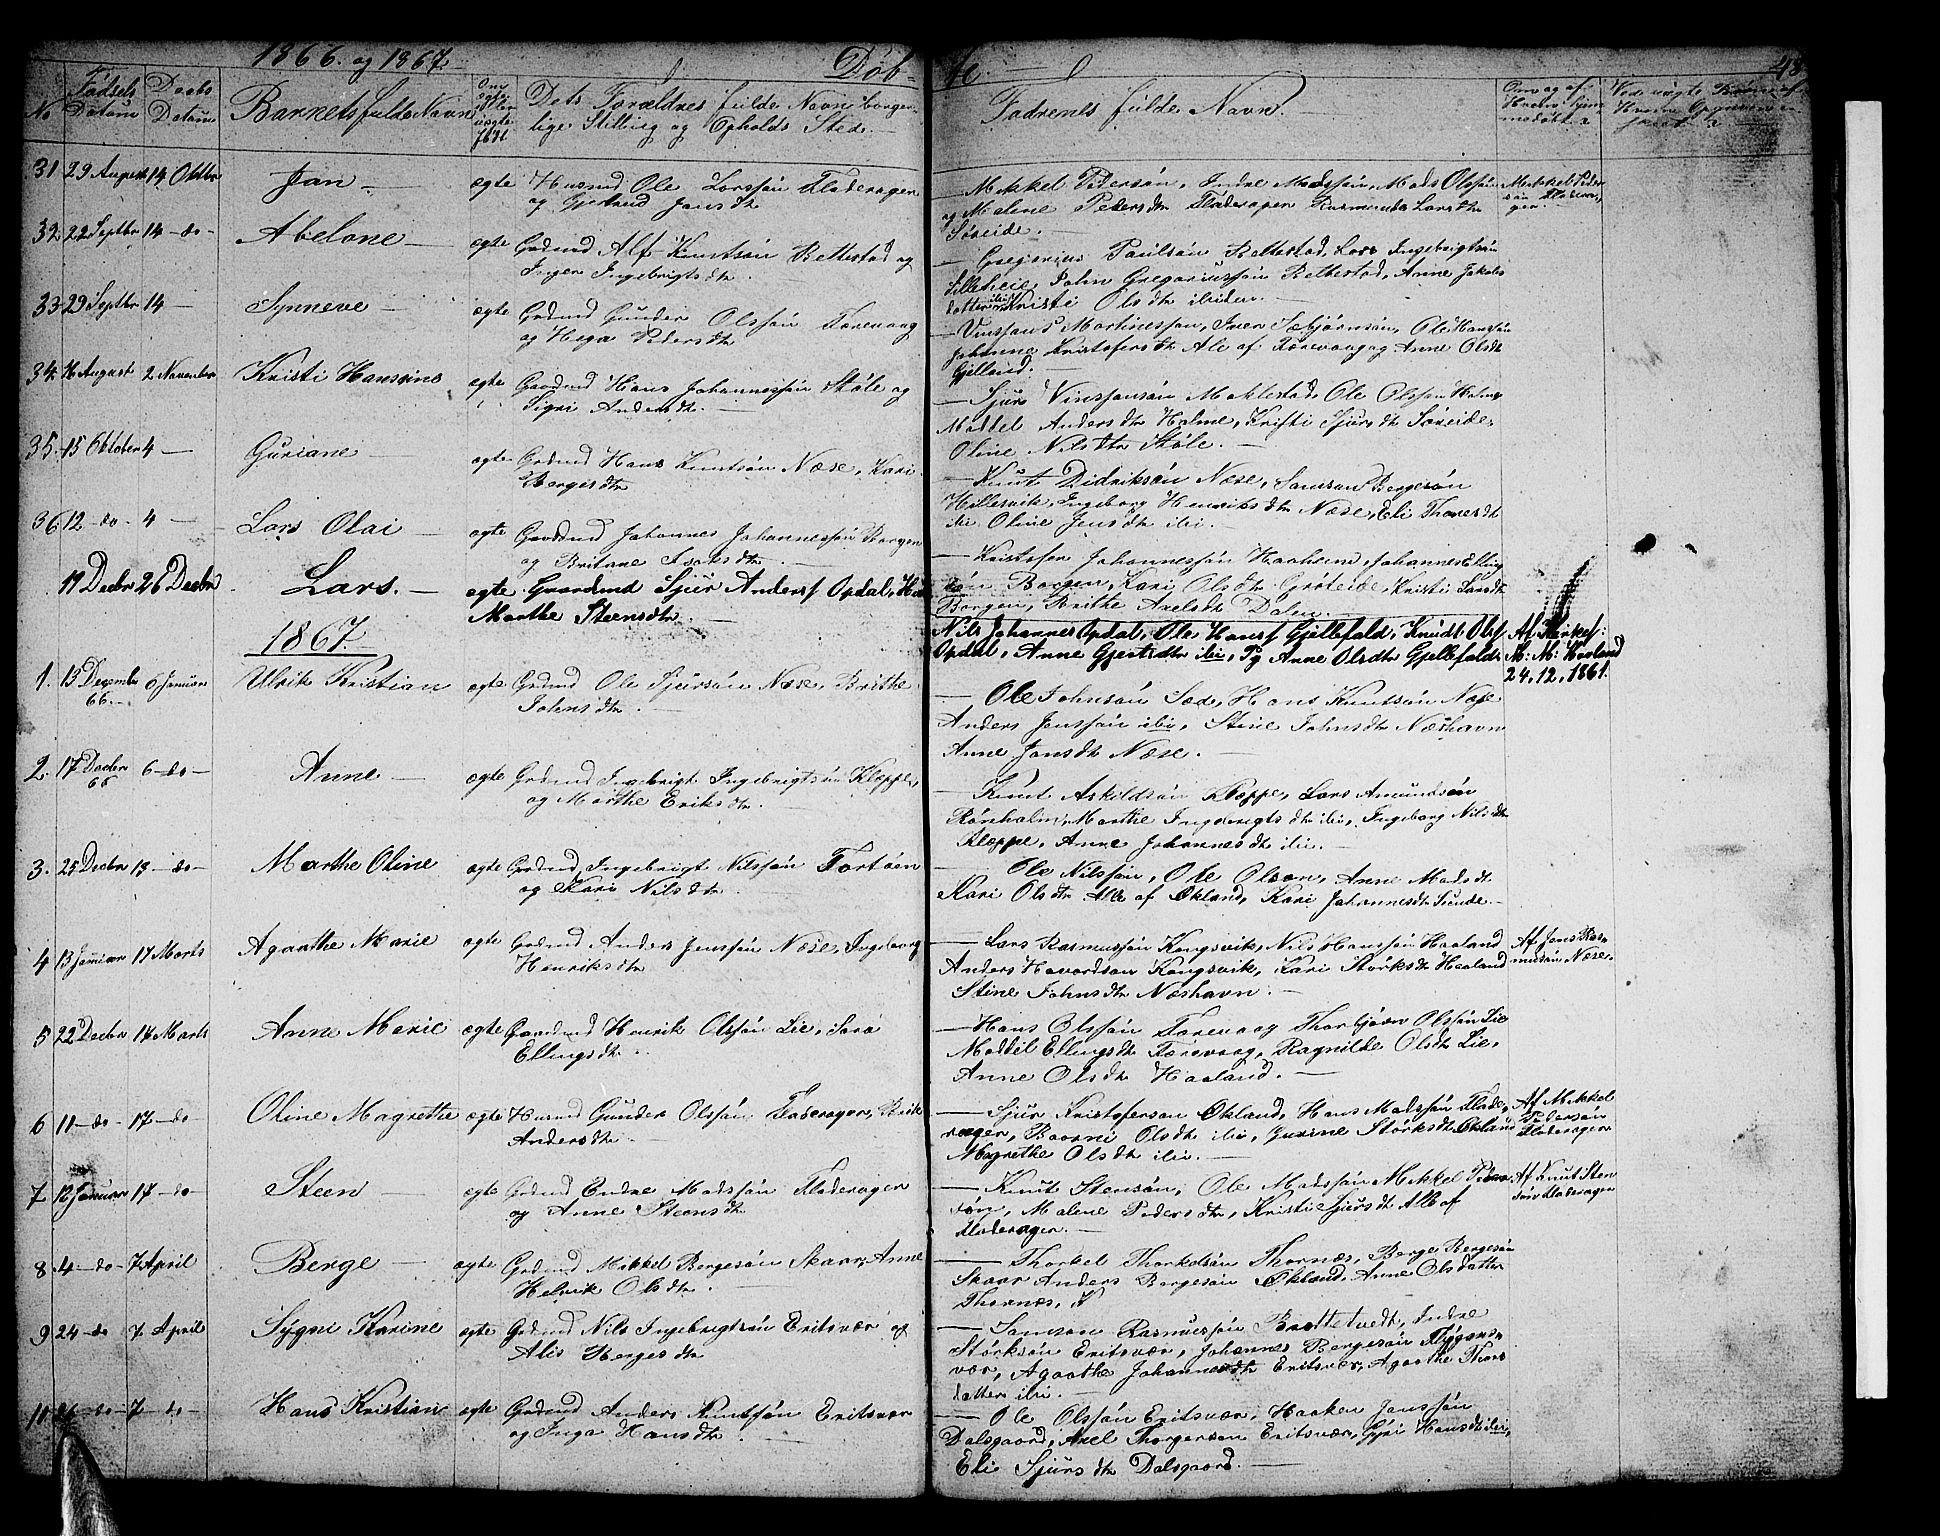 1866. og 1867.
Døb-
te.
48
No
Fødsels
Datum
Daabs
Datum
Barnets fulde Navn
Om
ægte
eller
uægte
født
Dets Forældres fulde Navn borger-
lige Stilling og Opholds Sted.
Fadrenes fulde Navn.
Om og af
Hvem hjem
medøbt
31 29 August 14 Oktbr
Jan
ægte Husmd Ole Larssøn Fladerager
og Gjertrud Jansdtr
Mikkel Pedersøn, Indre Madssøn, Mads Olssøn
og Malene Pedersdtr Fladerager Rasmunda Larsdtr
Søreide.
Mikkel Peder
søn Fladera-
ger
32 22 Septbr 14 do
Abelone
ægte Grdmd Alf Knutsøn Bettestad og
Inger Ingebrigtsdtr
Gregorius Paulsøn Bettestad, Lars Ingebrigtsøn
Lilleheie, John Gregoriussøn Bettestad, Anne Jakobs
datter ibid Kristi Olsdtr ibiden.
33 29 Septbr 14
Synneve
ægte Grdmd Gunder Olssøn Førevaag
og Helga Pedersdtr
Vinsjans Martinessøn, Iver Sæbjørnsøn, Ole Hanssøn
Johanne Kristofersdtr Ale af Førevaag og Anne Olsdtr
Gjelland.
34 16 August 2 November
Kristi Hansine
ægte Gaardmd Hans Johannessøn Støle og
Signi Andersdtr
Sjur Vinsjansøn Moklestad, Ole Olssøn Holme
Mattel Andersdtr Holme, Kristi Sjursdtr Søreide
Oline Nilsdtr Støle.
35. 15 Oktober 4
Guriane
ægte Grdmd Hans Knutsøn Næse, Kari
Bergesdtr
Knut Didriksøn Næse, Samson Bergesøn
Hillesvik, Ingeborg Henriksdtr Næse, Eli Thoresdtr
ibi Oline Jensdtr ibi.
36 12 do 4
Lars Olai
ægte Gaardmd Johannes Johannessøn Borgen
og Britane Isaksdtr
Kristofer Johannessøn Haaheim, Johannes Elling
søn Borgen, Kari Olsdtr Grøteide, Kristi Larsdtr
Borgen, Brithe Axelsdtr Dalen.
19 Decbr 26 Decbr
Lars.
ægte Gaardmd Sjur Anderss Opdal, H
Marthe Steensdtr
Nils Johannes Opdal, Ole Hanss Gjellefald, Knudt Olss
Opdal, Anne Gjertsdtr ibi, Pg Anne Olsdtr Gjellefald
Af Kirkes:
M: M: Haaland
24, 12, 1861.
1867.
1. 13 December 66. 6 Januar
Ulrik Kristian
ægte Grdmd Ole Sjursøn Næse, Brithe
Johnsdtr
Ole Johnsøn Sæd, Hans Knutsøn Næse
Anders Jenssøn ibi, Stine Johnsdtr Næshavn
Anne Jensdtr Næse.
2. 17 Decbr 66 6 do
Anne
ægte Grdmd Ingebrigt Ingebrigtsøn Kleppe,
og Marthe Eriksdtr
Knut Askeldsøn Kleppe, Lars Amundsøn
Røreholm, Marthe Ingebrigtsdtr ibi, Ingeborg Nilsdtr
Kleppe, Anne Johannesdtr ibi.
3. 25 Decbr 13 do
Marthe Oline
ægte Grdmd Ingebrigt Nilssøn Fortøen
og Kari Nilsdtr
Ole Nilssøn, Ole Olsøn, Anne Madsdtr
Kari Olsdtr Ale af Økland, Kari Johannesdtr Sunde.
4 13 Januar 17 Marts
Agaathe Marie
ægte Grdmd Anders Jenssøn Næse, Ingeborg
Henriksdtr
Lars Rasmussøn Kongsvik, Nils Hanssøn Haaland
Anders Havardsøn Kongsvik, Kari Størksdtr Haaland
Stine Johnsdtr Næshavn.
Af Jens Ras-
musøn Næse.
5 22 Decbr 17 Marts
Anne Marie
ægte Gaardmd Henrik Olssøn Lie, Sara
Ellingsdtr
Hans Olssøn Førevaag Thorbjørn Olssøn Lie
Mattil Ellingsdtr Førevaag, Ragnilde Olsdtr Lie,
Anne Olsdtr Haaland.
6 11 do 17 do
Oline Magrethe
ægte Husmd Gunder Olssøn Fladerager, Brite
Andersdtr
Sjur Kristofersøn Økland, Hans Madssøn Flade-
rager, Baarni Olsdtr ibi, Gurine Størksdtr Økland
Magrethe Olsdtr ibi.
Af Mikkel
Pedersøn
Fladerager
7 12 Januar 17 do
Steen
ægte Grdmd Endre Madssøn Fladerager
og Anne Steensdtr
Knut Stensøn, Ole Madssøn Mikkel Peder
søn, Malene Pedersdtr, Kristi Sjursdtr Alle af
Fladerager.
Af Knut Sten
søn Fladerager
8 4 do 7 April
Berge
ægte Grdmd Mikkel Bergesøn Skaar, Anne
Helvik Olsdtr
Thorkel Thorkelsøn Thornæs, Berge Bergesøn
Skaar Anders Bergesøn Økland, Anne Olsdatter
Thornæs,
9 24 do 7 April
Sygni Karine
ægte Grdmd Nils Ingebrigtsøn Eritsvær og
Alis Bergesdtr
Samson Rasmussøn Brattetvedt, Indre
Størksøn Eritsvær, Johannes Bergesøn Flygans-
vær, Agaathe Johannesdtr Eritsvær, Agaathe Thors
datter ibi.
10 26 do 7 do
Hans Kristian
ægte Grdmd Anders Knutsøn Eritsvær
og Inga Hansdtr
Ole Olssøn Eritsvær, Haaken Janssøn
Dalsgaard, Axel Thorgersøn Eritsvær, Gjøri Hansdtr ibi,
Eli Sjursdtr Dalsgaard.